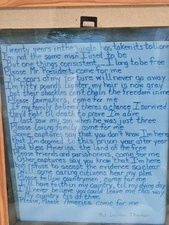 Twenty years in the jungle has taken its toll on me
I'm not the same man I used to be
But one things consistent I long to be free
Please Mr. President, come for me
The scars of my torture will never go away
I'm fifty pounds lighter, my hair is gray
But their shackles can't chain the freedom in me
Please Journalist, come for me
If my family believes there's a chance I survived
They'll fight till death to prove I'm alive
I lost you my son when he was just three
Please loving son come for me
Some captures say that you don't know I'm here
That I'm doomed to this prison year after year
God bless America, the land of the free
Please friends and parishioners, come for me
Other captures say you know that I'm here
But refuse to accept the evidence so clear
With some caring citizens her may plea
Please fellow countrymen come for me
I'll have faith in my country, till my dying day
I'll never believe you could leave me this way
My country tis of thee
Please, Please America come for me